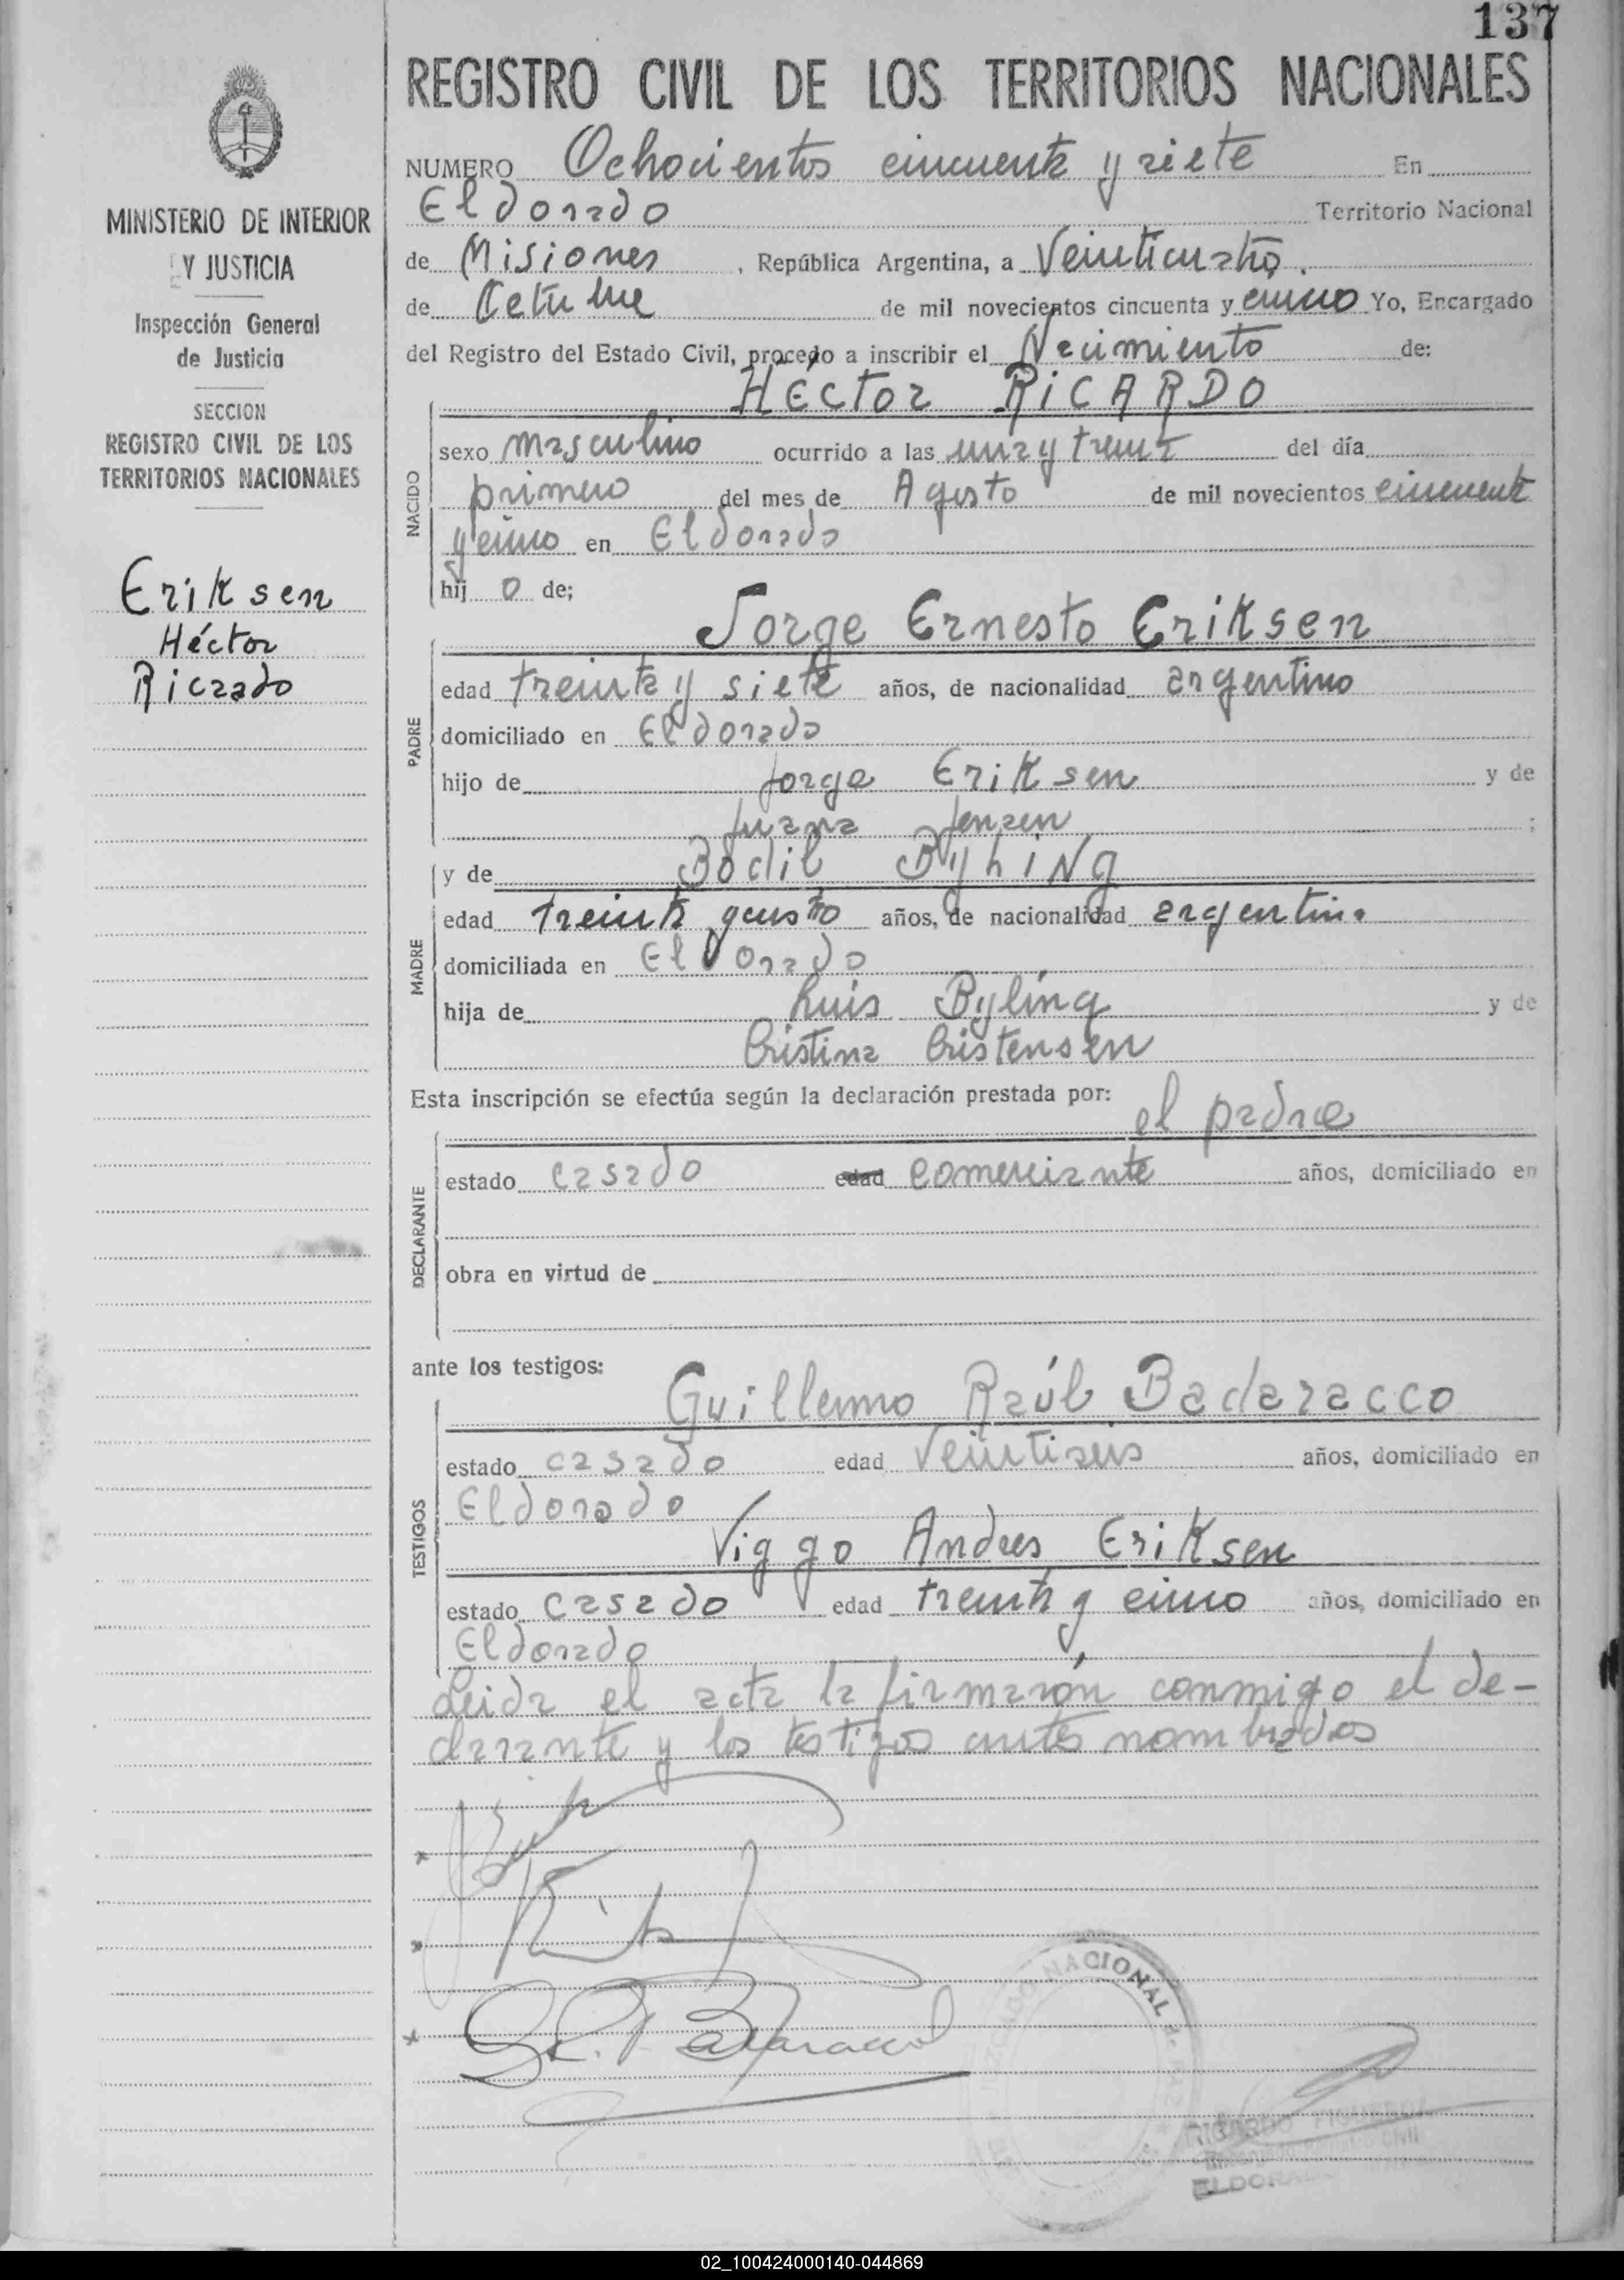 137
REGISTRO CIVIL DE LOS TERRITORIOS NACIONALES
MINISTERIO DE INTERIOR
Y JUSTICIA
Inspección General
de Justicia
SECCION
REGISTRO CIVIL DE LOS
TERRITORIOS NACIONALES
Eriksen
Héctor
Ricardo
NUMERO Ochocientos cincuenta y siete En
Eldorado Territorio Nacional
de Misiones, República Argentina, a Veinticuatro.
de Octubre de mil novecientos cincuenta y cinco Yo, Encargado
del Registro del Estado Civil, procedo a inscribir el Nacimiento de:
HÉctor RiCARDO
NACIDO
sexo masculino ocurrido a las una y treinta del día
primero del mes de Agosto de mil novecientos cincuenta
y cinco en Eldorado
hij o de;
Jorge Ernesto Eriksen
PADRE
edad treinta y siete años, de nacionalidad argentino
domiciliado en Eldorado
hijo de Jorge Eriksen y de
Juana Jensen ;
y de Bodil ByhiNg
MADRE
edad treinta y cuatro años, de nacionalidad argentina
domiciliada en Eldorado
hija de Luis Byling y de
Cristina Cristensen
Esta inscripción se efectúa según la declaración prestada por:
el padre
DECLARANTE
estado casado edad comerciante años, domiciliado en
obra en virtud de
ante los testigos:
Guillermo Raúl Badaracco
TESTIGOS
estado casado edad Veintiseis años, domiciliado en
Eldorado
Viggo Andres Eriksen
estado casado edad treinta y cinco años, domiciliado en
Eldorado
Leida el acta la firmarón conmigo el de-
clarante y los testigos antes nombrados
NACIONAL
RICARDO FIGUEROA
Registro Civil
ELDORADO
02_100424000140-044869